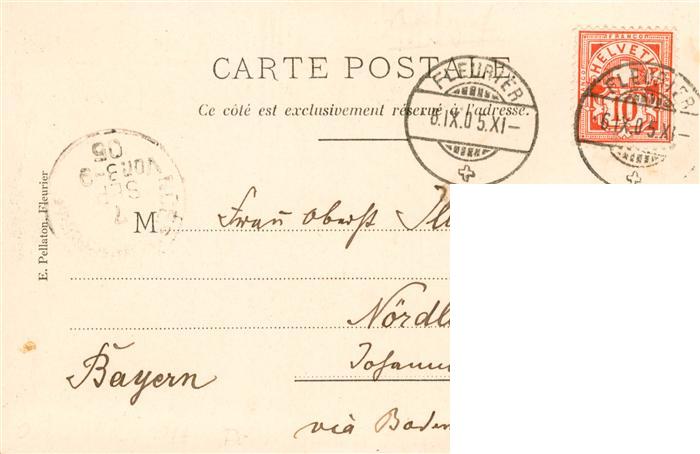 CARTE POSTALE
Ce côté est exclusivement réservé à l'adresse.
FRANCO
HELVETIA
10
FLEURIER
6.IX.05.XI–
FLEURIER
6.IX.05.XI–
E. Pellaton, Fleurier
M
Frau Oberst
Nördl
Bayern
Johann
via Baden